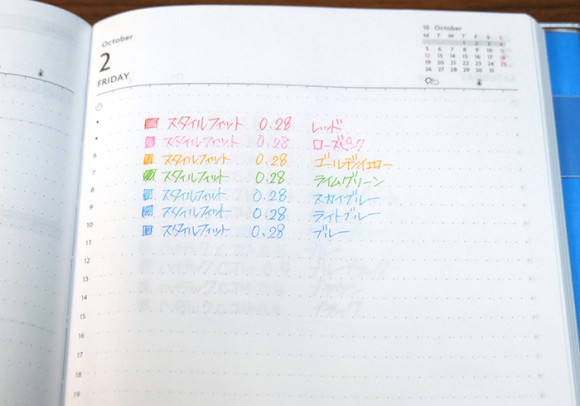 October
2
FRIDAY
10 October
M T W T F S S
1 2 3 4
5 6 7 8 9 10 11
12 13 14 15 16 17 18
19 20 21 22 23 24 25
26 27 28 29 30 31
スタイルフィット 0.28 レッド
スタイルフィット 0.28 ローズピンク
6 スタイルフィット 0.28 ゴールデンイエロー
7 スタイルフィット 0.28 ライムグリーン
8 スタイルフィット 0.28 スカイブルー
9 スタイルフィット 0.28 ライトブルー
10 スタイルフィット 0.28 ブルー
11
12
13
14
15